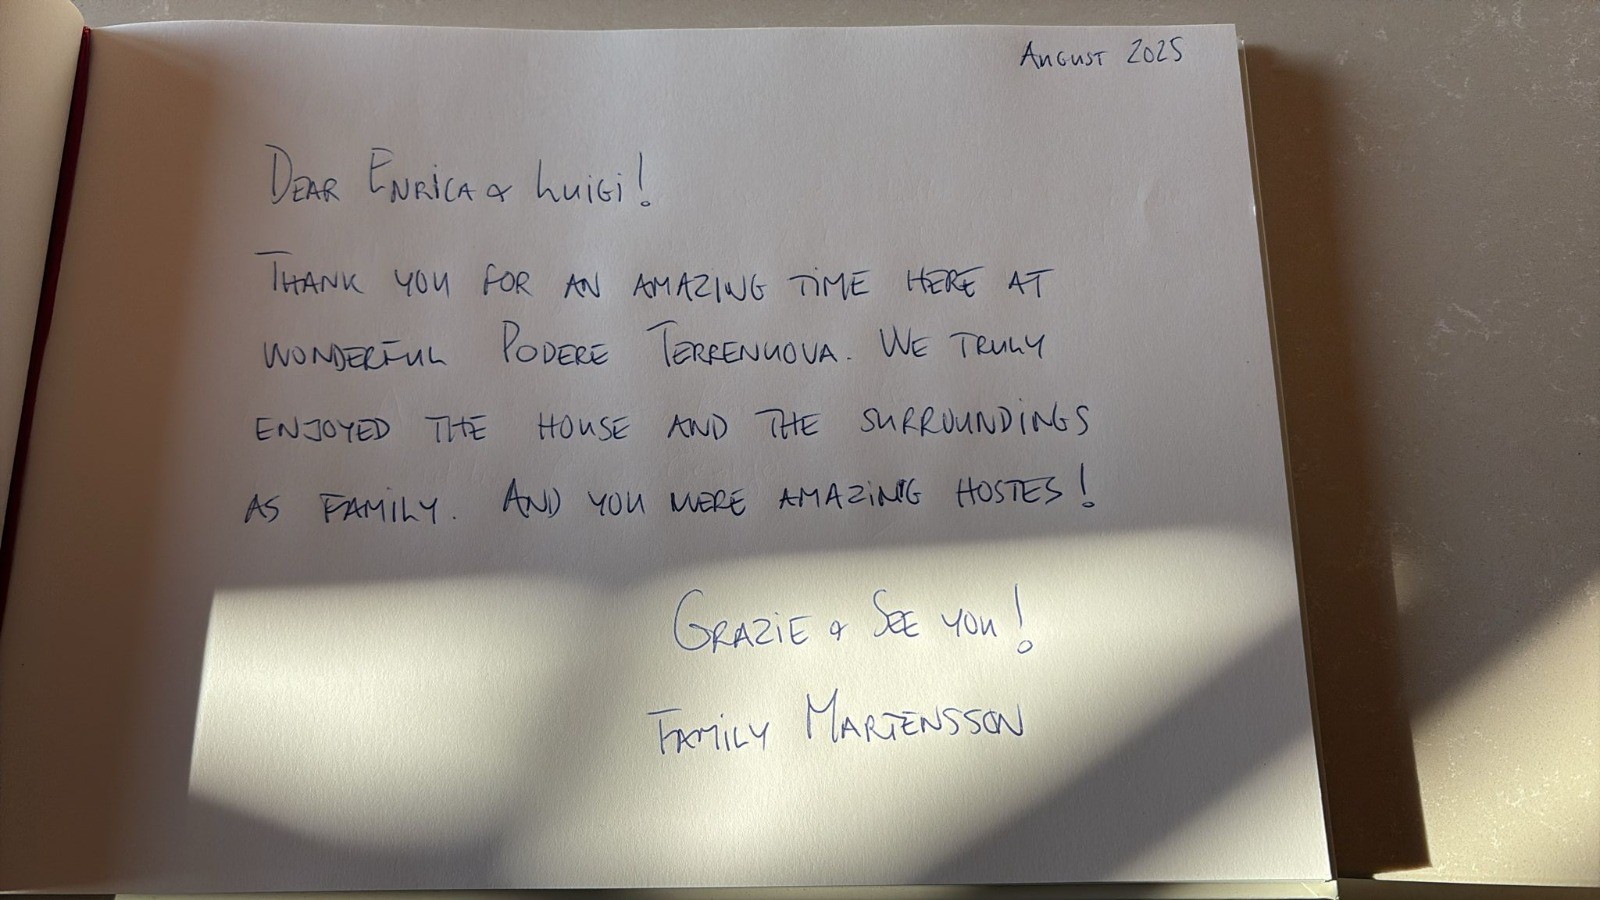 August 2025
Dear Enrica & Luigi!
Thank you for an amazing time here at
wonderful Podere Terrenuova. We truly
enjoyed the house and the surroundings
as family. And you were amazing hostes!
Grazie & see you!
Family Martensson